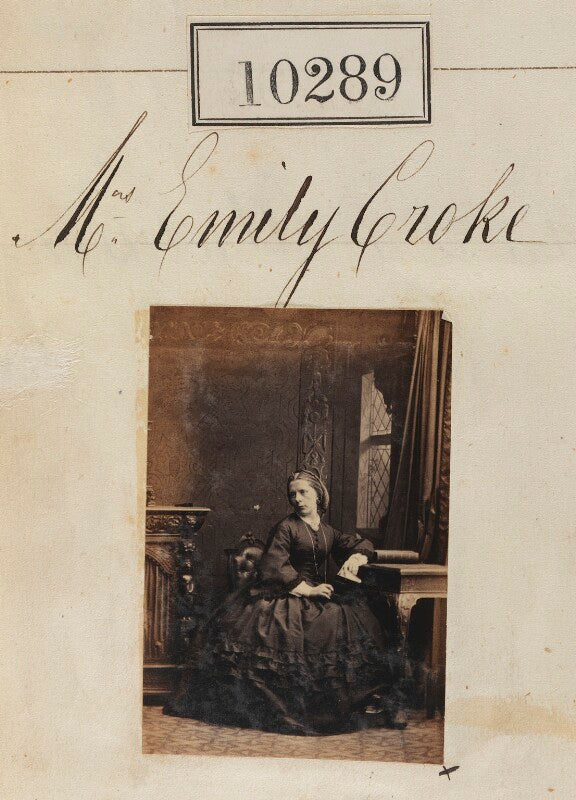 10289
Mrs. Emily Croke